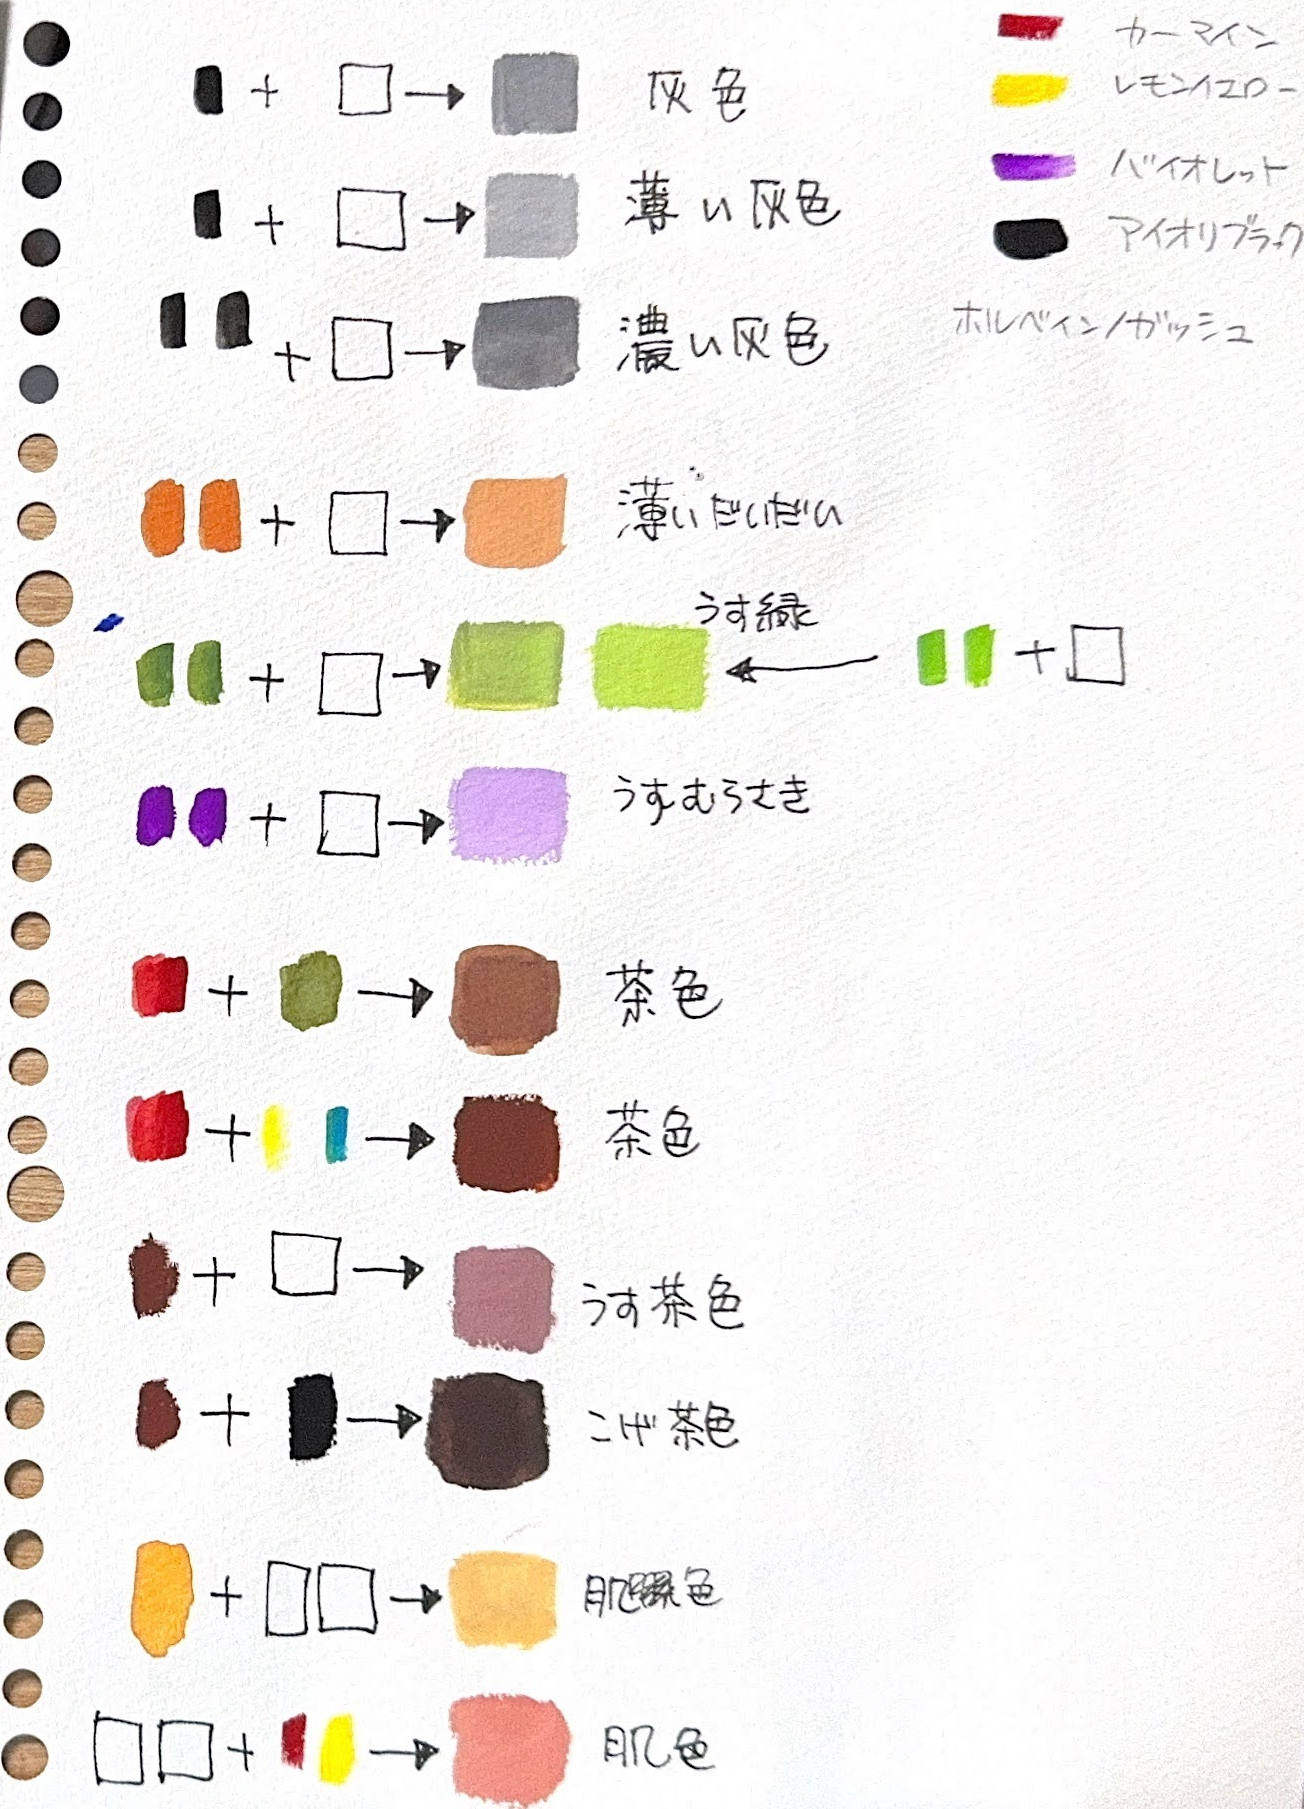 カーマイン
レモンイエロー
バイオレット
アイオリブラック
ホルベイン/ガッシュ
+ → 灰色
+ → 薄い灰色
+ → 濃い灰色
+ → 薄いだいだい
+ → うす緑 ← +
+ → うすむらさき
+ → 茶色
+ → 茶色
+ → うす茶色
+ → こげ茶色
+ → 肌色
+ → 肌色